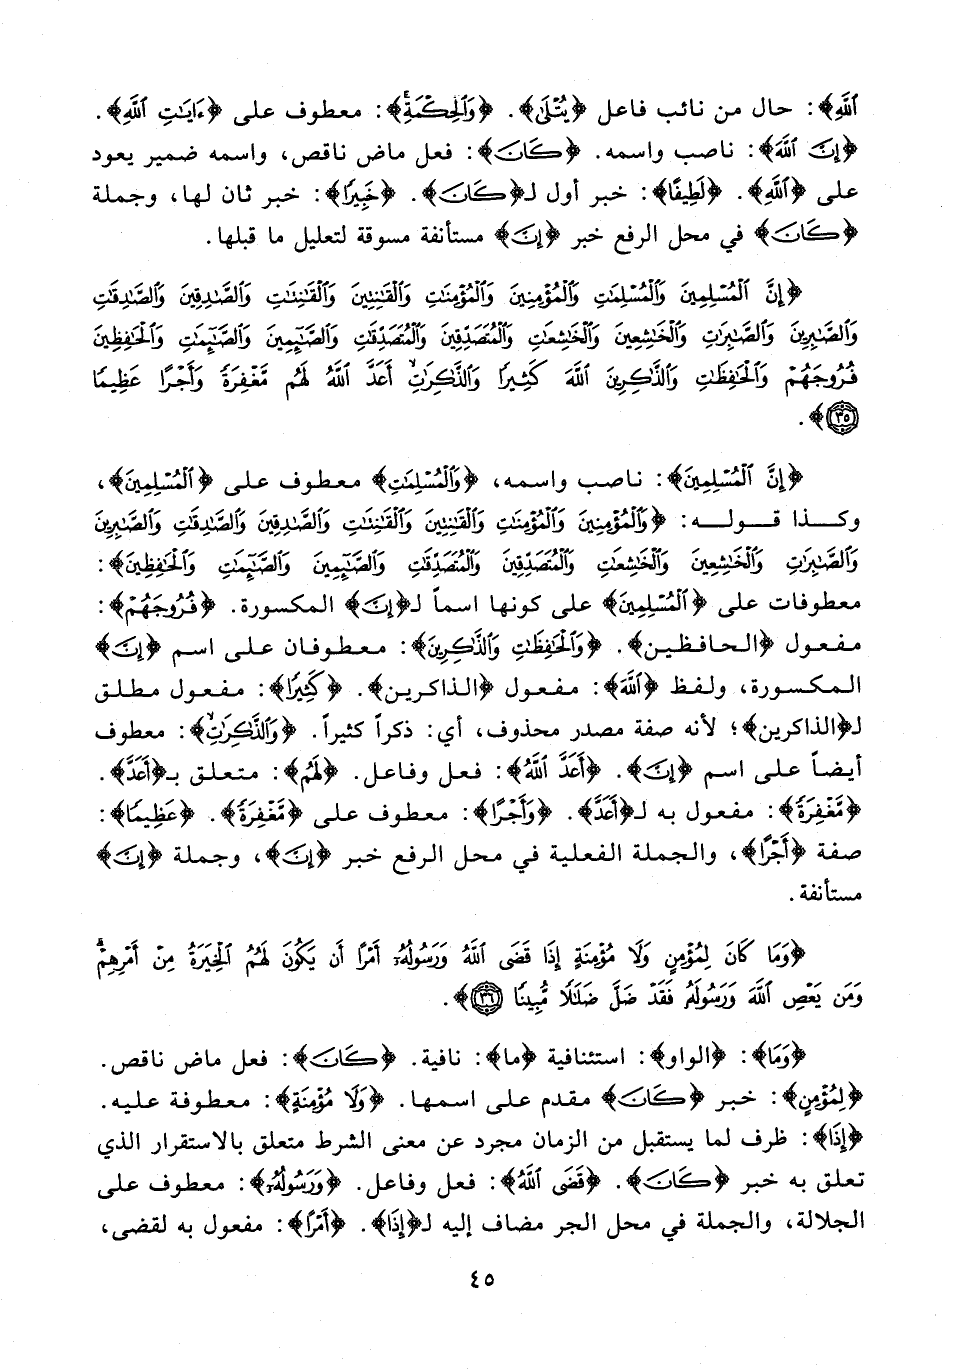 ٱللَّهِ﴾: حال من نائب فاعل ﴿يُتْلَىٰ﴾. ﴿وَٱلْحِكْمَةِۚ﴾: معطوف على ﴿ءَايَٰتِ ٱللَّهِ﴾.
﴿إِنَّ ٱللَّهَ﴾: ناصب واسمه. ﴿كَانَ﴾: فعل ماض ناقص، واسمه ضمير يعود
على ﴿ٱللَّهِ﴾. ﴿لَطِيفًا﴾: خبر أول لـ﴿كَانَ﴾. ﴿خَبِيرًا﴾: خبر ثان لها، وجملة
﴿كَانَ﴾ في محل الرفع خبر ﴿إِنَّ﴾ مستأنفة مسوقة لتعليل ما قبلها.
﴿إِنَّ ٱلْمُسْلِمِينَ وَٱلْمُسْلِمَٰتِ وَٱلْمُؤْمِنِينَ وَٱلْمُؤْمِنَٰتِ وَٱلْقَٰنِتِينَ وَٱلْقَٰنِتَٰتِ وَٱلصَّٰدِقِينَ وَٱلصَّٰدِقَٰتِ
وَٱلصَّٰبِرِينَ وَٱلصَّٰبِرَٰتِ وَٱلْخَٰشِعِينَ وَٱلْخَٰشِعَٰتِ وَٱلْمُتَصَدِّقِينَ وَٱلْمُتَصَدِّقَٰتِ وَٱلصَّٰٓئِمِينَ وَٱلصَّٰٓئِمَٰتِ وَٱلْحَٰفِظِينَ
فُرُوجَهُمْ وَٱلْحَٰفِظَٰتِ وَٱلذَّٰكِرِينَ ٱللَّهَ كَثِيرًا وَٱلذَّٰكِرَٰتِ أَعَدَّ ٱللَّهُ لَهُم مَّغْفِرَةً وَأَجْرًا عَظِيمًا
٣٥﴾.
﴿إِنَّ ٱلْمُسْلِمِينَ﴾: ناصب واسمه، ﴿وَٱلْمُسْلِمَٰتِ﴾ معطوف على ﴿ٱلْمُسْلِمِينَ﴾،
وكذا قوله: ﴿وَٱلْمُؤْمِنِينَ وَٱلْمُؤْمِنَٰتِ وَٱلْقَٰنِتِينَ وَٱلْقَٰنِتَٰتِ وَٱلصَّٰدِقِينَ وَٱلصَّٰدِقَٰتِ وَٱلصَّٰبِرِينَ
وَٱلصَّٰبِرَٰتِ وَٱلْخَٰشِعِينَ وَٱلْخَٰشِعَٰتِ وَٱلْمُتَصَدِّقِينَ وَٱلْمُتَصَدِّقَٰتِ وَٱلصَّٰٓئِمِينَ وَٱلصَّٰٓئِمَٰتِ وَٱلْحَٰفِظِينَ﴾:
معطوفات على ﴿ٱلْمُسْلِمِينَ﴾ على كونها اسماً لـ﴿إِنَّ﴾ المكسورة. ﴿فُرُوجَهُمْ﴾:
مفعول ﴿الحافظين﴾. ﴿وَٱلْحَٰفِظَٰتِ وَٱلذَّٰكِرِينَ﴾: معطوفان على اسم ﴿إِنَّ﴾
المكسورة، ولفظ ﴿ٱللَّهَ﴾: مفعول ﴿الذاكرين﴾. ﴿كَثِيرًا﴾: مفعول مطلق
لـ﴿الذاكرين﴾؛ لأنه صفة مصدر محذوف، أي: ذكراً كثيراً. ﴿وَٱلذَّٰكِرَٰتِ﴾: معطوف
أيضاً على اسم ﴿إِنَّ﴾. ﴿أَعَدَّ ٱللَّهُ﴾: فعل وفاعل. ﴿لَهُم﴾: متعلق بـ﴿أَعَدَّ﴾.
﴿مَّغْفِرَةً﴾: مفعول به لـ﴿أَعَدَّ﴾. ﴿وَأَجْرًا﴾: معطوف على ﴿مَّغْفِرَةً﴾. ﴿عَظِيمًا﴾:
صفة ﴿أَجْرًا﴾، والجملة الفعلية في محل الرفع خبر ﴿إِنَّ﴾، وجملة ﴿إِنَّ﴾
مستأنفة.
﴿وَمَا كَانَ لِمُؤْمِنٍ وَلَا مُؤْمِنَةٍ إِذَا قَضَى ٱللَّهُ وَرَسُولُهُۥٓ أَمْرًا أَن يَكُونَ لَهُمُ ٱلْخِيَرَةُ مِنْ أَمْرِهِمْۗ
وَمَن يَعْصِ ٱللَّهَ وَرَسُولَهُۥ فَقَدْ ضَلَّ ضَلَٰلًا مُّبِينًا ٣٦﴾.
﴿وَمَا﴾: ﴿الواو﴾: استئنافية ﴿ما﴾: نافية. ﴿كَانَ﴾: فعل ماض ناقص.
﴿لِمُؤْمِنٍ﴾: خبر ﴿كَانَ﴾ مقدم على اسمها. ﴿وَلَا مُؤْمِنَةٍ﴾: معطوفة عليه.
﴿إِذَا﴾: ظرف لما يستقبل من الزمان مجرد عن معنى الشرط متعلق بالاستقرار الذي
تعلق به خبر ﴿كَانَ﴾. ﴿قَضَى ٱللَّهُ﴾: فعل وفاعل. ﴿وَرَسُولُهُۥٓ﴾: معطوف على
الجلالة، والجملة في محل الجر مضاف إليه لـ﴿إِذَا﴾. ﴿أَمْرًا﴾: مفعول به لقضى،
٤٥